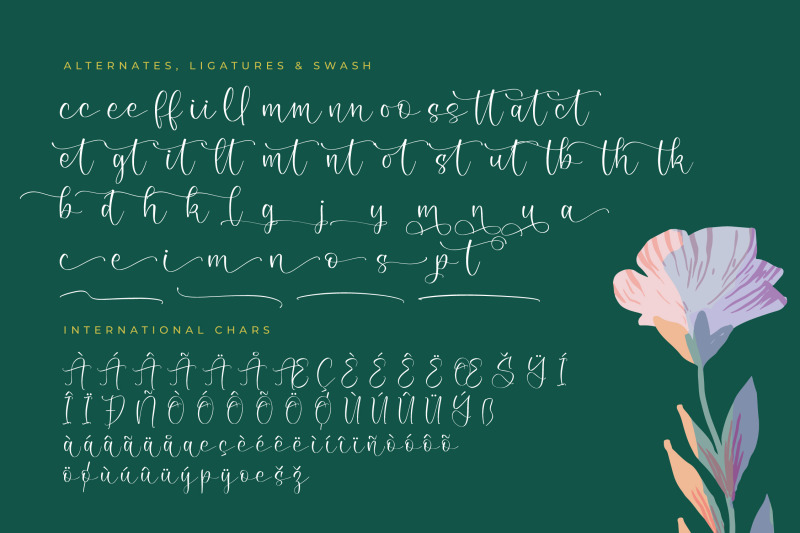 ALTERNATES, LIGATURES & SWASH
cc ee ff ii ll mm nn oo ss tt at ct
et gt it lt mt nt ot st ut tb th tk
b d h k l g j y m n u a
c e i m n o s p t
INTERNATIONAL CHARS
À Á Â Ã Ä Å Æ Ç È É Ê Ë Œ Š Ÿ Í
Î Ï Ð Ñ Ò Ó Ô Õ Ö Ø Ù Ú Û Ü Ý ß
à á â ã ä å æ ç è é ê ë ì í î ï ñ ò ó ô õ
ö ø ù ú û ü ý þ ÿ œ š ž